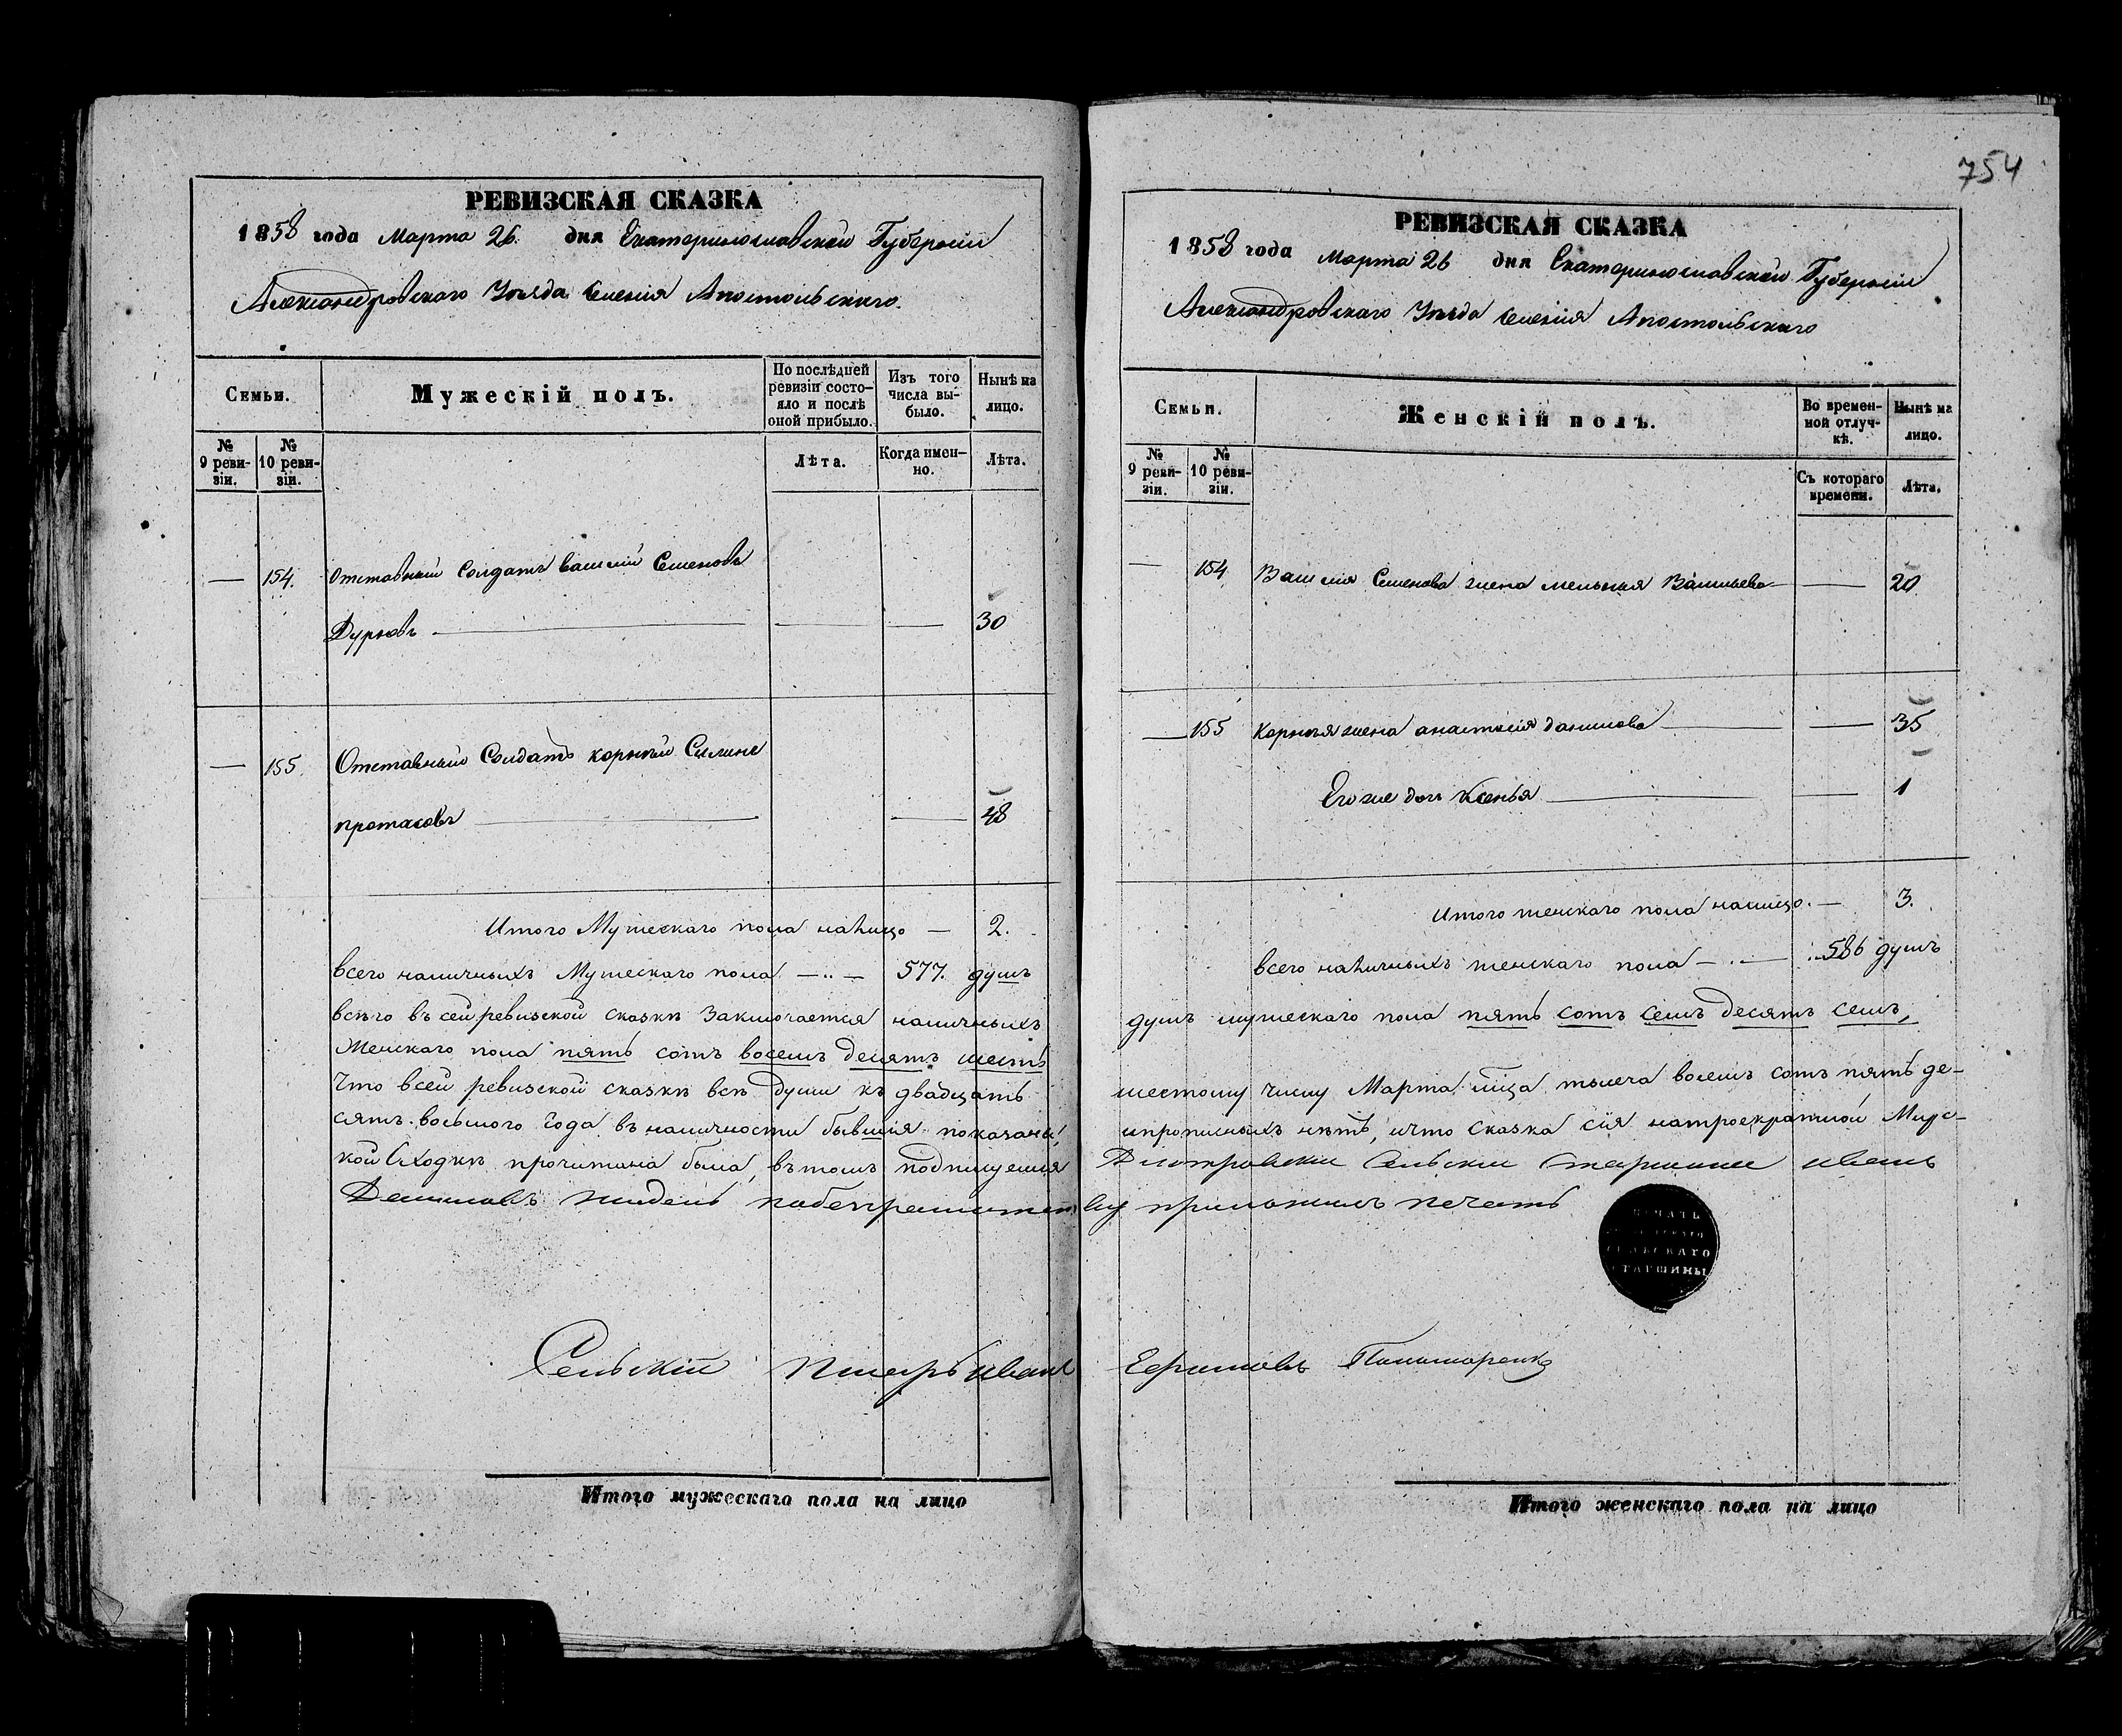 754
РЕВИЗСКАЯ СКАЗКА
1858 года Марта 26. дня Екатеринославской Губерніи
Александровскаго Уѣзда Селенія Апостольскаго.
Семьи.
Мужескій полъ.
По послѣдней ревизіи состояло и послѣ оной прибыло.
Изъ того числа выбыло.
Нынѣ на лицо.
№ 9 ревизіи.
№ 10 ревизіи.
Лѣта.
Когда именно.
Лѣта.
— 154. Отставный Солдатъ Василій Семеновъ
Дурновъ — — — 30
— 155. Отставный Солдатъ корнѣй
протасовъ — — 48
Итого Мужескаго пола налицо — 2.
всего наличныхъ Мужескаго пола — .. — 577. душъ
всѣго въ сей ревизской сказкѣ Заключается наличныхъ
Женскаго пола пять сотъ восемъ десятъ шесть
Что всей ревизской сказкѣ всѣ души къ двадцать
сятъ восьмого года въ наличности бывшия показаны,
кой Сходкѣ прочитана была, въ томъ подпишемся
Даниловъ
Сельскій Писарь иванъ
Итого мужескаго пола на лицо
РЕВИЗСКАЯ СКАЗКА
1858 года Марта 26 дня Екатеринославской Губерніи
Александровскаго Уѣзда Селенія Апостольскаго
Семьи.
Женскій полъ.
Во временной отлучкѣ.
Нынѣ на лицо.
№ 9 ревизіи.
№ 10 ревизіи.
Съ котораго времени.
Лѣта.
— 154. Василія Семенова жена Васильева — 20
— 155 Корнѣя жена анастасія данилова — — 35
Его же доч Ксенья — — 1
Итого женскаго пола налицо. — 3.
всего наличныхъ женскаго пола — . — 586 душъ
душъ мужескаго пола пять сотъ семъ десятъ семъ,
шестому числу Марта м-ца тысеча восемъ сотъ пять де-
ипрописныхъ нѣтъ, ичто сказка сія натроекратной Мирс-
Сельский старшина иванъ
приложилъ печать
ПЕЧАТЬ
СЕЛЬСКАГО
СТАРШИНЫ
Ефимовъ Понамаренко
Итого женскаго пола на лицо